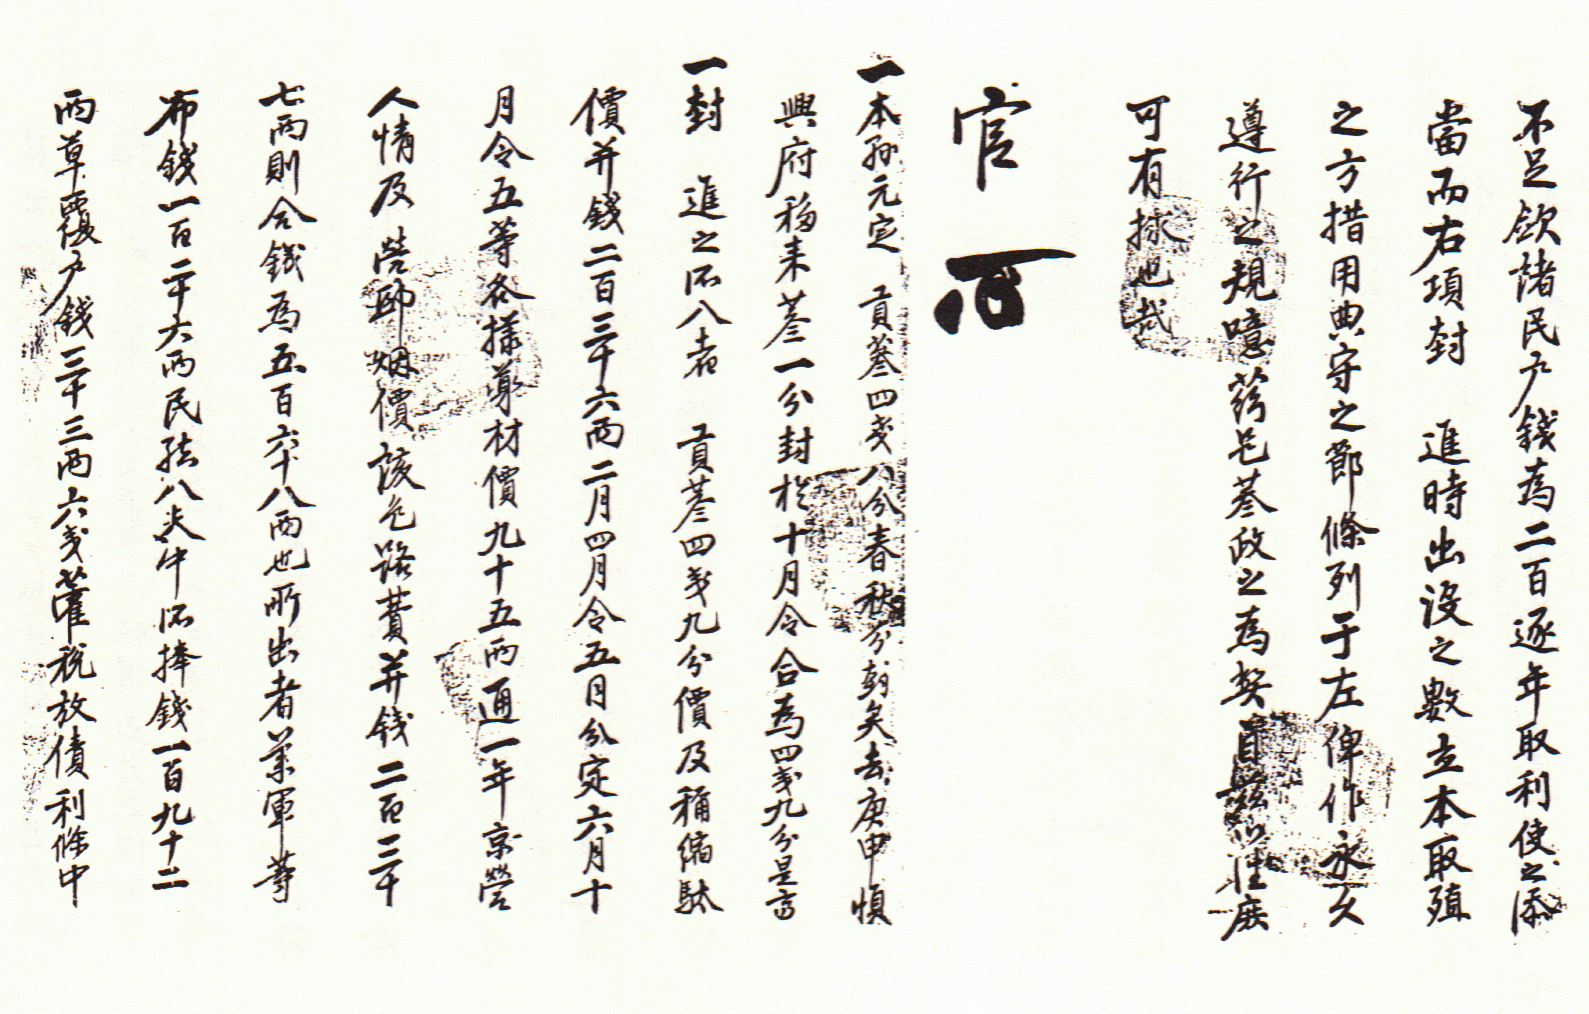 不足斂諸民戶錢為二百逐年取利使之添
當而右項封 進時出沒之數立本取殖
之方措用典守之節條列于左俾作永久
遵行之規噫蔘政之為契自茲以往庶
可有捄也哉
官
一本孫元定 貢蔘四戔八分春秋分封矣去庚申順
興府移來蔘一分封於十月令合為四戔九分是齊
一封 進之不八者 貢蔘四戔九分價及稱縮駄
價并錢二百三十六兩二月四月令五月分定六月十
月令五等各樣藥材價九十五兩通一年京營
人情及 營邸烟價該色路費并錢二百三十
七兩則合錢為五百六十八兩也所出者業軍等
布錢一百二十六兩民結八夫中不捧錢一百九十二
兩草覆戶錢三十三兩六戔藿稅放債利條中